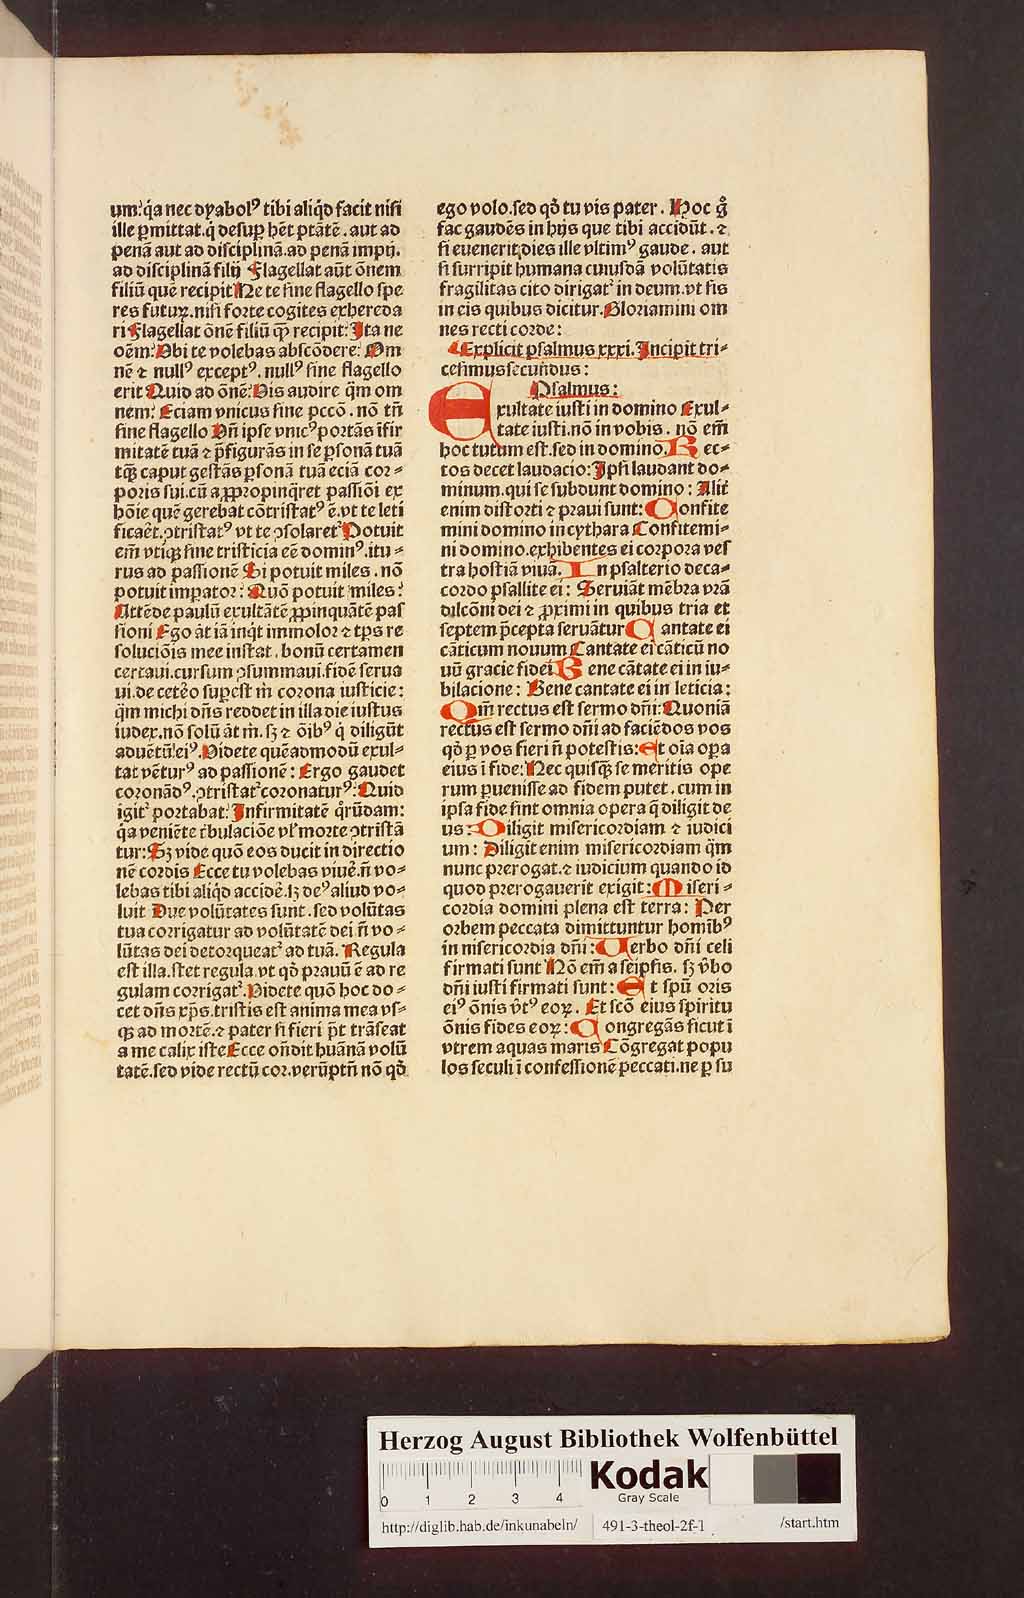 um.' q̇a nec dyabolꝰ tibi aliq̇d facit nisi
ille ꝑmittat. q̇ desuꝑ hēt ptātē. aut ad
penā aut ad disciplinā. ad penā impij.
ad disciplinā filij Flagellat aūt ōnem
filiū quē recipit Ne te sine flagello spe
res futuꝝ. nisi forte cogites exhereda
ri Flagellat ōnē filiū qꝫ recipit: Ita ne
oēm: Ubi te volebas abscōdere: Om
nē ⁊ nullꝰ exceptꝰ. nullꝰ sine flagello
erit Quid ad ōnē: Vis audire q̇m om
nem: Eciam vnicus sine pccō. nō tn̄
sine flagello Un̄ ipse vnicꝰ portās īfir
mitatē tuā ⁊ p̄figurās in se ꝑsonā tuā
tqꝫ caput gestās ꝑsonā tuā eciā cor⸗
poris sui. cū aꝓpropinq̇ret passiōi ex
hōie quē gerebat cōtristatꝰ ē. vt te leti
ficaēt. ꝯtristatꝰ vt te ꝯsolaret᷑ Potuit
em̄ vtiqꝫ sine tristicia eē dominꝰ. itu⸗
rus ad passionē Si potuit miles. nō
potuit imꝑator: Quō potuit miles:
Attēde paulū exultātē ꝓpinquātē pas
sioni Ego āt iā inq̇t immolor ⁊ tp̄s re
soluciōis mee instat. bonū certamen
certaui. cursum ꝯsummaui. fidē serua
ui. de ceteō suꝑest m̄ corona iusticie:
q̇m michi dn̄s reddet in illa die iustus
iudex. nō solū āt m̄. sꝫ ⁊ ōibꝰ q̇ diligūt
aduētū eiꝰ. Videte quēadmodū exul⸗
tat vētur ꝰ ad passionē: Ergo gaudet
coronādꝰ. ꝯtristat᷑ coronaturꝰ: Quid
igit᷑ portabat: Infirmitatē q̇rūdam:
q̇a veniēte tr̄bulaciōe vl᷑ morte ꝯtristā
tur: Sꝫ vide quō eos ducit in directio
nē cordis Ecce tu volebas viuē. n̄ vo⸗
lebas tibi aliq̇d accidē. sꝫ deꝰ aliud vo⸗
luit Due volūtates sunt. sed volūtas
tua corrigatur ad volūtatē dei n̄ vo⸗
lūtas dei detorqueat᷑ ad tuā. Regula
est illa. stet regula. vt qd̄ prauū ē ad re
gulam corrigat᷑. Videte quō hoc do⸗
cet dn̄s xp̄s. tristis est anima mea vs⸗
qꝫ ad mortē. ⁊ pater si fieri p̄t trāseat
a me calix iste Ecce on̄dit huānā volū
tatē. sed vide rectū cor. verūptn̄ nō qd̄
ego volo. sed qd̄ tu vis pater. Hoc g̊
fac gaudēs in hijs que tibi accidūt. ⁊
si euenerit dies ille vltimꝰ gaude. aut
si surripit humana cuiusdā volūtatis
fragilitas cito dirigat᷑ in deum. vt sis
in eis quibus dicitur. Gloriamini om
nes recti corde:
Explicit psalmus xxxi. Incipit tri⸗
cesimussecundus:
Psalmus:
Exultate iusti in domino Exul⸗
tate iusti. nō in vobis. nō em̄
hoc tutum est. sed in domino. Rec⸗
tos decet laudacio: Ipsi laudant do⸗
minum. qui se subdunt domino: Alit᷑
enim distorti ⁊ praui sunt: Confite
mini domino in cythara Confitemi⸗
ni domino. exhibentes ei corpora ves
tra hostiā viuā. In psalterio deca⸗
cordo psallite ei: Seruiāt mēbra vr̄a
dilcōni dei ⁊ ꝓximi in quibus tria et
septem p̄cepta seruātur Cantate ei
cāticum nouum Cantate ei cāticū no
uū gracie fidei Bene cātate ei in iu⸗
bilacione: Bene cantate ei in leticia:
Qm̄ rectus est sermo dn̄i: Quoniā
rectus est sermo dn̄i ad faciēdos vos
qd̄ ꝑ vos fieri n̄ potestis: Et oīa oꝑa
eius ī fide: Nec quisqꝫ se meritis ope
rum ꝑuenisse ad fidem putet. cum in
ipsa fide sint omnia opera q̄ diligit de
us: Diligit misericordiam ⁊ iudici
um: Diligit enim misericordiam q̇m
nunc prerogat. ⁊ iudicium quando id
quod prerogauerit exigit: Miseri⸗
cordia domini plena est terra: Per
orbem peccata dimittuntur homībꝰ
in misericordia dn̄i: Verbo dn̄i celi
firmati sunt Nō em̄ a seipsis. sꝫ v̄bo
dn̄i iusti firmati sunt: Et spū oris
eiꝰ ōnis v̄tꝰ eoꝝ. Et scō eius spiritu
ōnis fides eoꝝ: Congregās sicut ī
vtrem aquas maris Cōgregat popu
los seculi ī confessionē peccati. ne ꝑ su
Herzog August Bibliothek Wolfenbüttel
0 1 2 3 4
Kodak
Gray Scale
http://diglib.hab.de/inkunabeln/ 491-3-theol-2f-1 /start.htm